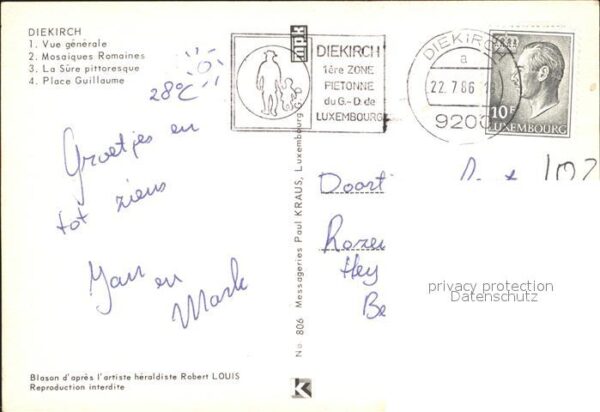 DIEKIRCH
1. Vue générale
2. Mosaiques Romaines
3. La Sûre pittoresque
4. Place Guillaume
28°C
Groetjes en
tot ziens
Jan en
Mark
Blason d'après l'artiste héraldiste Robert LOUIS
Reproduction interdite
No. 806 Messageries Paul KRAUS, Luxembourg G. D.
mpk
DIEKIRCH
1ère ZONE
PIETONNE
du G.-D. de
LUXEMBOURG
DIEKIRCH
a
22.7.86
9200
10F
LUXEMBOURG
Doort
Rozen
Hey
Be
privacy protection
Datenschutz
K